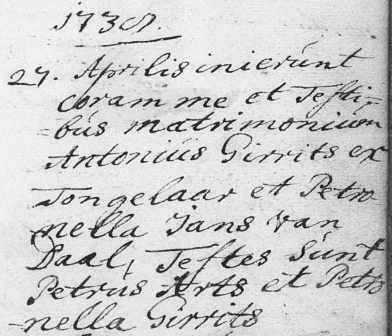 173
27. Aprilis inierúnt
coram me et Testi=
=bús matrimonium
Antoniús Girrits ex
Tongelaar et Petro
nella Jans van
Daal, Testes súnt
Petrús Arts et Petro
=nella Girrits